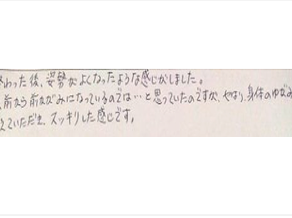 わった後、姿勢がよくなったような感じがしました。
前から前かがみになっているのでは…と思っていたのですが、やはり、身体のゆがみ
えていただき、スッキリした感じです。